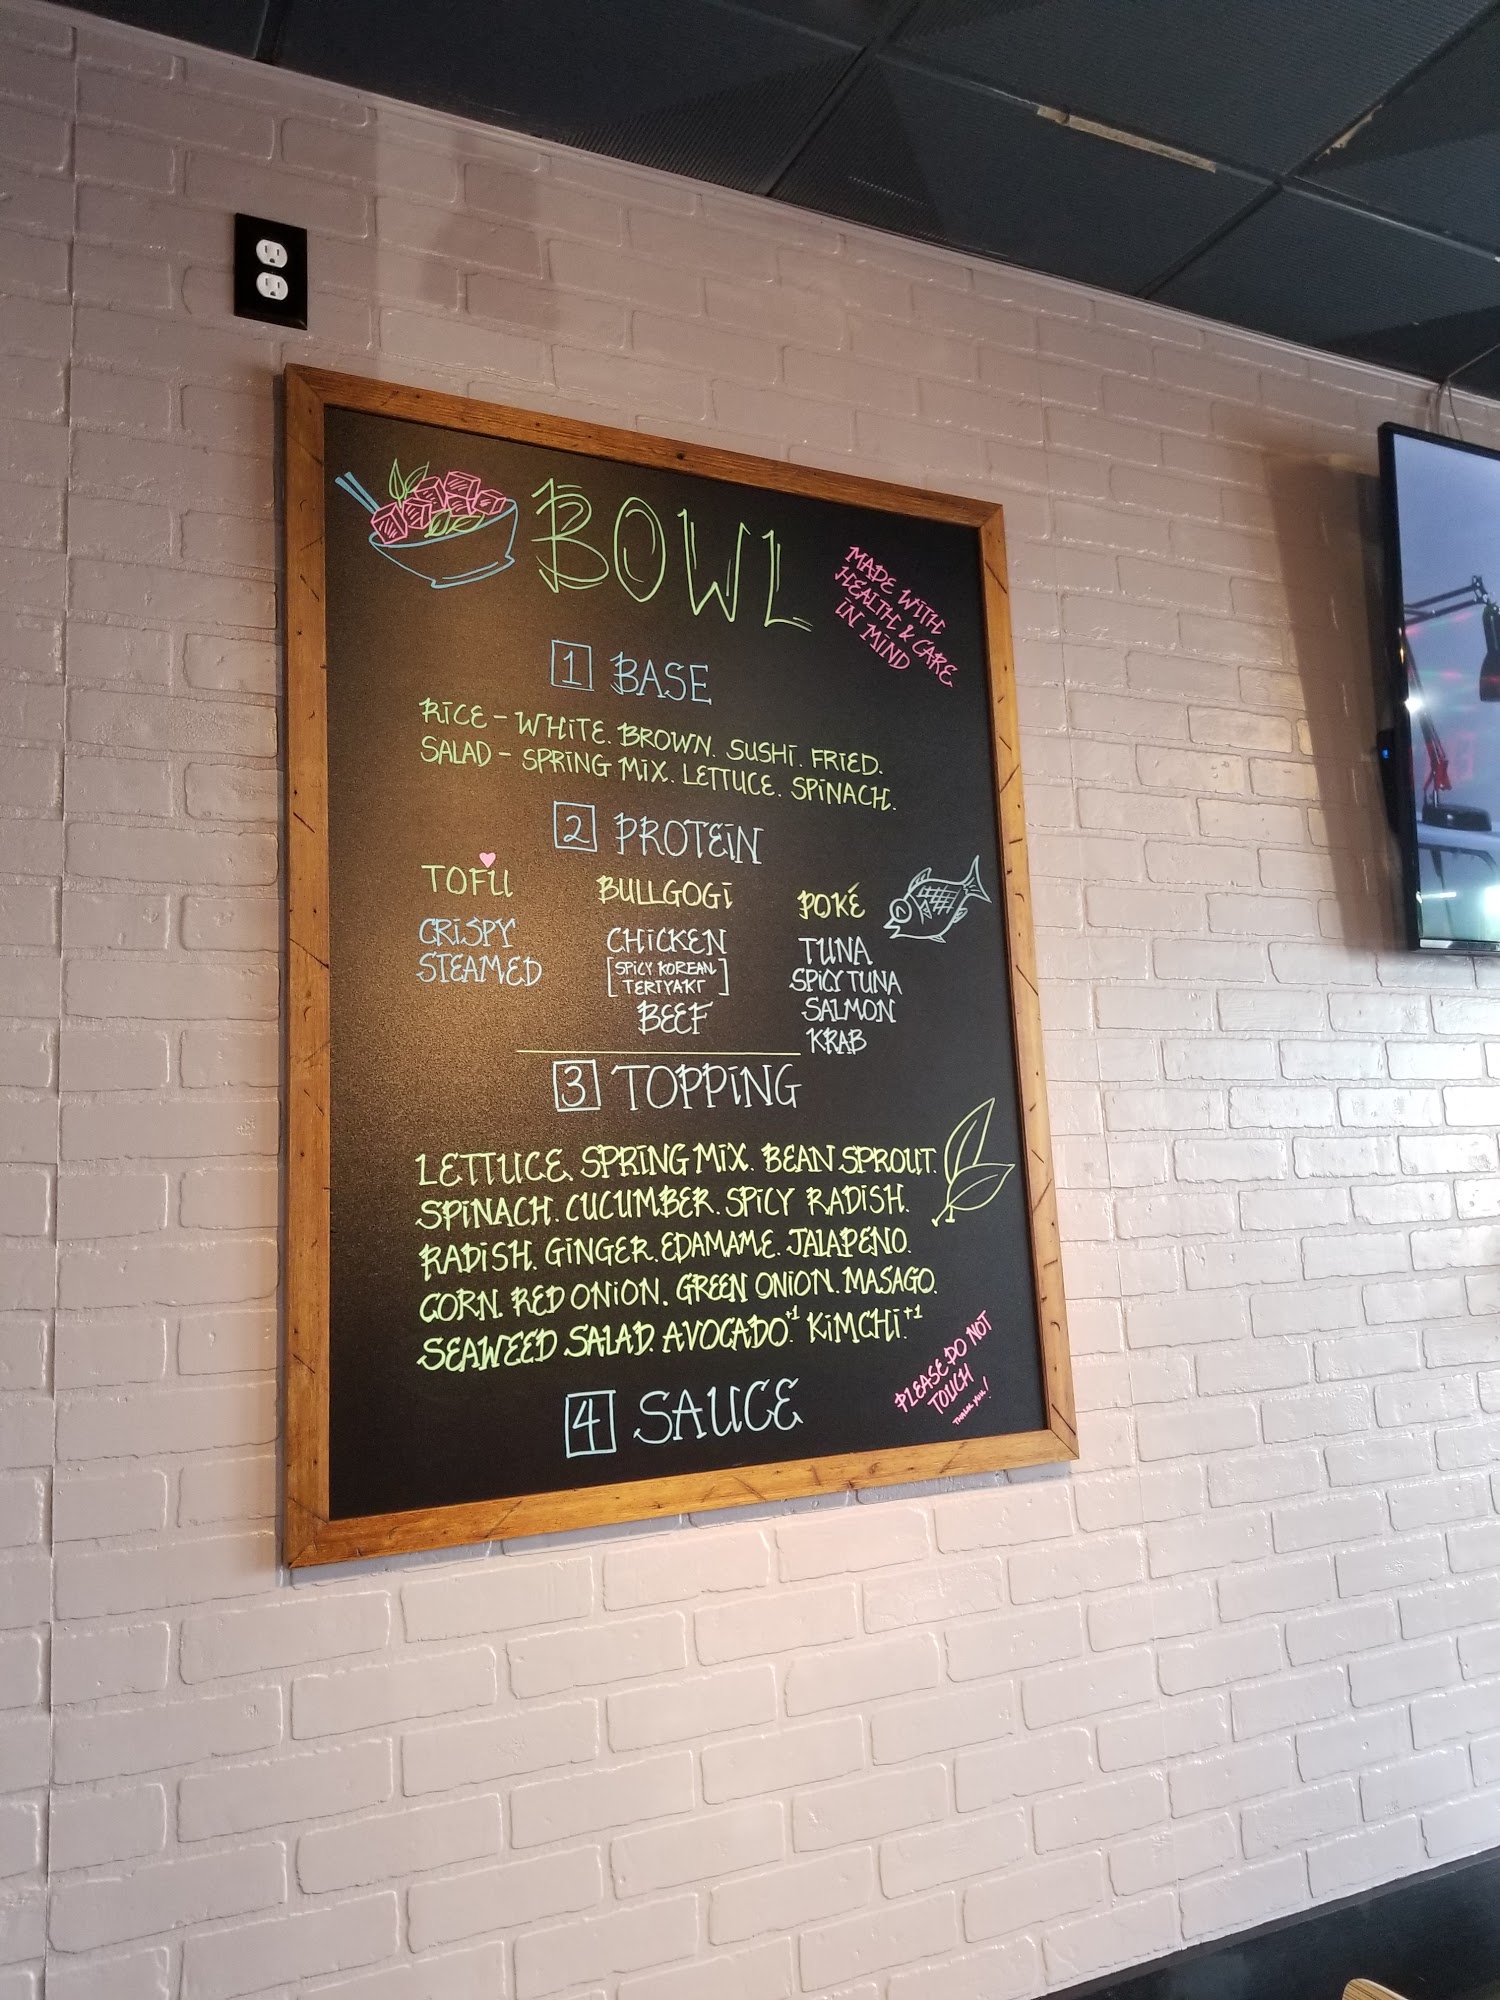 BOWL
MADE WITH
HEALTH & CARE
IN MIND
1 BASE
RICE - WHITE. BROWN. SUSHI. FRIED.
SALAD - SPRING MIX. LETTUCE. SPINACH.
2 PROTEIN
TOFU
CRISPY
STEAMED
BULLGOGI
CHICKEN
[SPICY KOREAN
TERIYAKI]
BEEF
POKÉ
TUNA
SPICY TUNA
SALMON
KRAB
3 TOPPING
LETTUCE. SPRING MIX. BEAN SPROUT.
SPINACH. CUCUMBER. SPICY RADISH.
RADISH. GINGER. EDAMAME. JALAPENO.
CORN. RED ONION. GREEN ONION. MASAGO.
SEAWEED SALAD. AVOCADO+1. KIMCHI.+1
4 SAUCE
PLEASE DO NOT
TOUCH
THANK YOU!